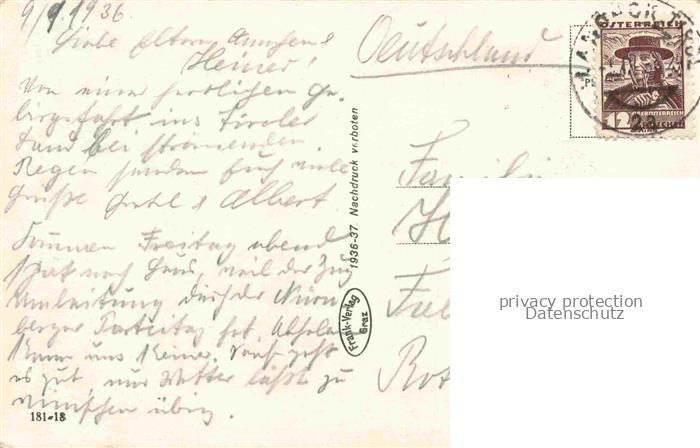 9/9 1936
Liebe Eltern, Annchen &
Heiner!
Von einer herrlichen Ge-
birgsfahrt ins Tiroler
Land bei strömenden
Regen senden Euch viele
Grüße Gretel & Albert
Kommen Freitag abend
spät nach Haus, weil der Zug
Umleitung durch der Nürn
berger Parteitag hat. Abholen
kann uns keiner. Sonst geht
es gut, nur Wetter läßt zu
wünschen übrig.
181-18
1936-37. Nachdruck verboten
Frank-Verlag
Graz
Deutschland
ÖSTERREICH
12
Familie
H
Rot
privacy protection
Datenschutz